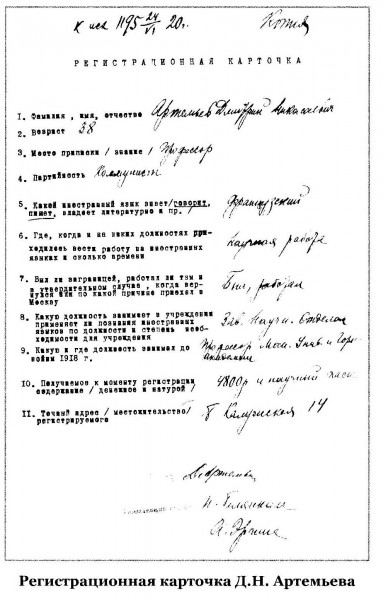 К исх 1195 24/VI 20г. Копия
РЕГИСТРАЦИОННАЯ КАРТОЧКА
1. Фамилия, имя, отчество Артемьев Дмитрий Николаевич
2. Возраст 38
3. Место приписки / звание / Профессор
4. Партийность Коммунист
5. Какой иностранный язык знает/говорит, Французский
пишет, владеет литературно и пр. /
6. Где, когда и на каких должностях при- научная работа
ходилось вести работу на иностранных
языках и сколько времени
7. Был ли заграницей, работал ли там и Был, работал
в утвердительном случае, когда вер-
нулся или по какой причине приехал в
Москву
8. Какую должность занимает в учреждении Зав. Научн. Отделом
применяет ли познания иностранных
языков по должности и степень необ-
ходимости для учреждения
9. Какую и где должность занимал до Профессор Моск. Унив. и Горн.
войны 1918 г. академии
10. Получаемое к моменту регистрации 4800р и научный паек
содержание / денежное и натурой /
11. Точный адрес / местожительство / Калужская 14
регистрируемого
Артемьев
Регистрационная карточка Д.Н. Артемьева